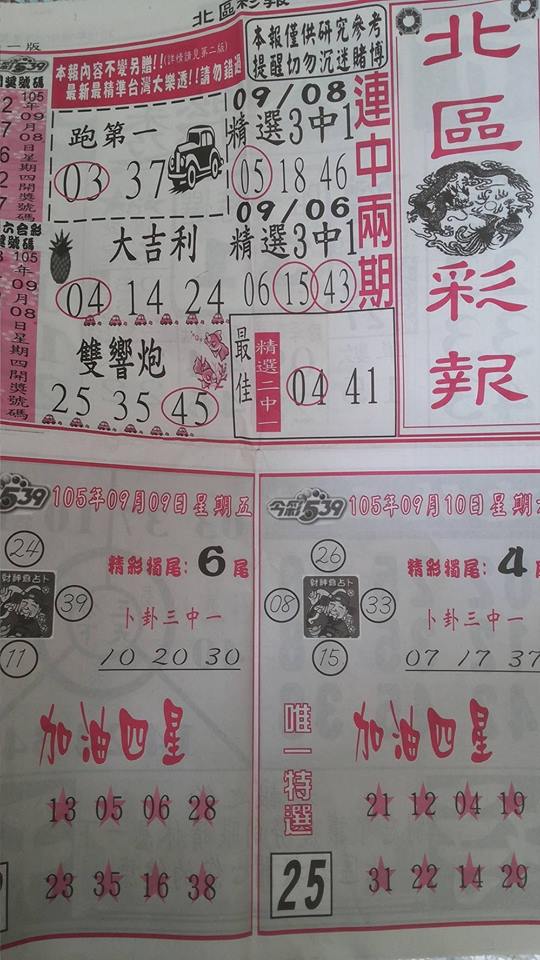 北區彩報
一版
本報內容不變另贈!!(詳情請見第二版)
最新最精準台灣大樂透!!請勿錯過
本報僅供研究參考
提醒切勿沉迷賭博
北區彩報
539
獎號碼
105年09月08日星期四開獎號碼
2
7
6
2
7
六合彩
獎號碼
105年09月08日星期四開獎號碼
跑第一
03 37
大吉利
04 14 24
雙響炮
25 35 45
09/08
精選3中1
05 18 46
09/06
精選3中1
06 15 43
連中兩期
最佳
精選二中一
04 41
539
105年09月09日星期五
24
39
11
財神爺占卜
精彩獨尾:6尾
卜卦三中一
10 20 30
加油四星
13 05 06 28
23 35 16 38
今彩539
105年09月10日星期
26
08
33
15
財神爺占卜
精彩獨尾:4尾
卜卦三中一
07 17 37
加油四星
唯一特選
25
21 12 04 19
31 22 14 29